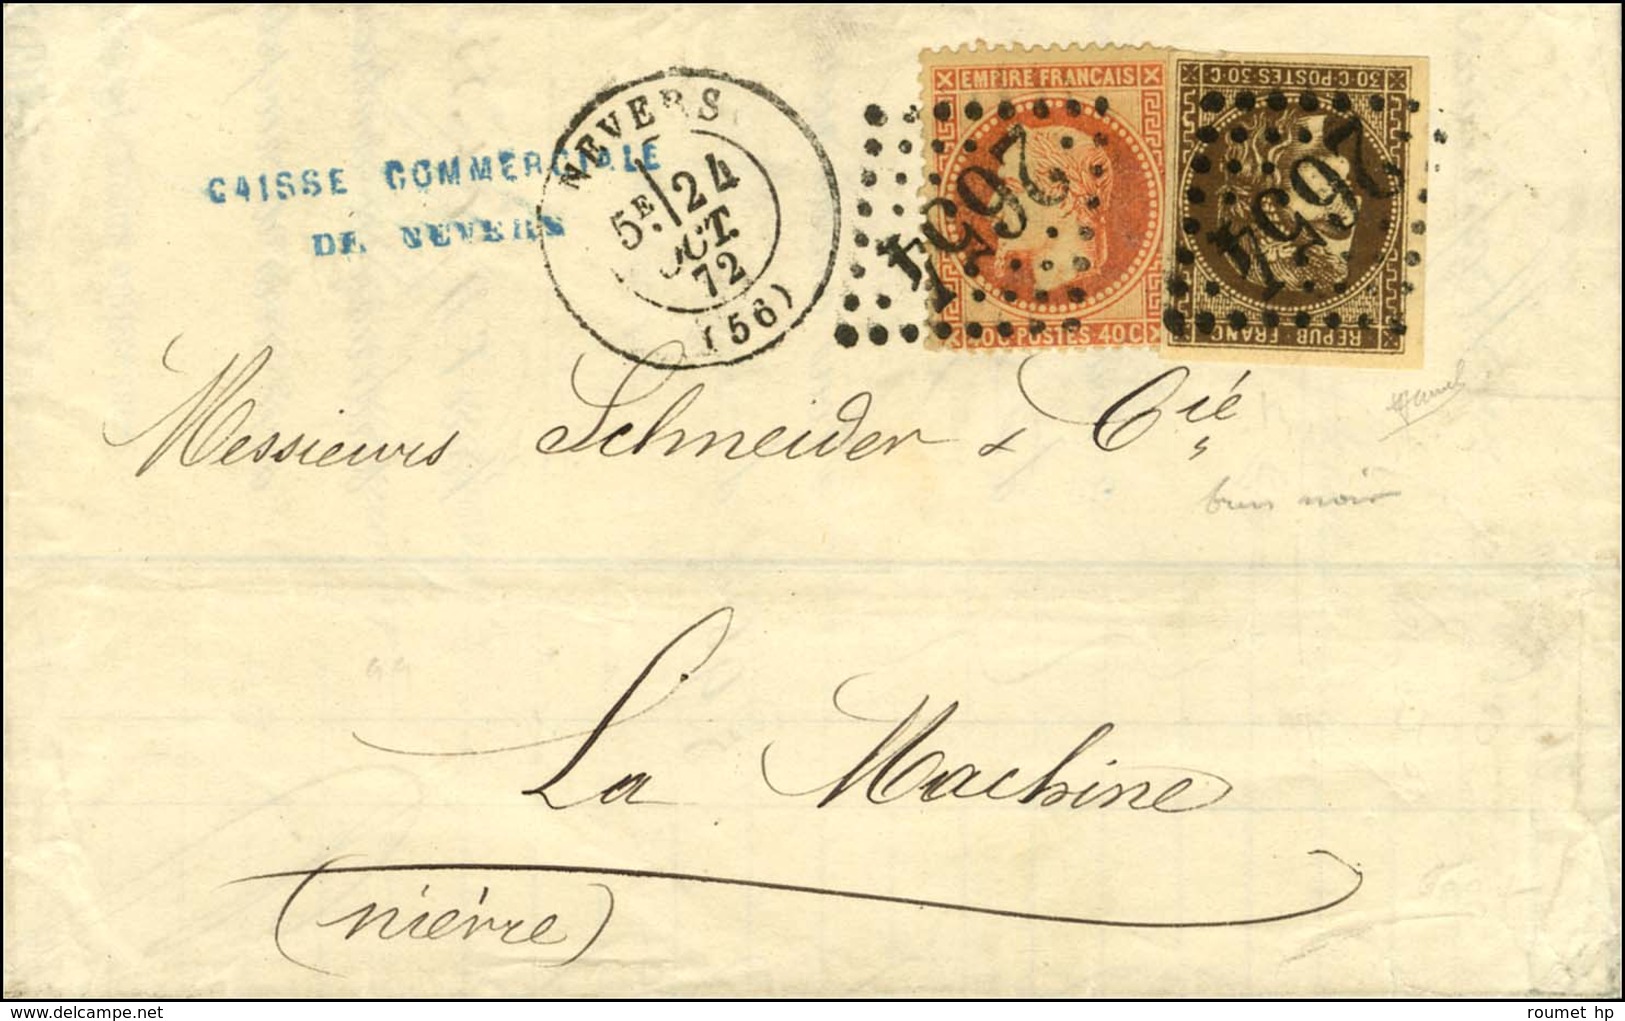 CAISSE COMMERCIALE
DE NEVERS
NEVERS
5E 24
OCT.
72
(56)
EMPIRE FRANCAIS
40C·POSTES·40C
2654
30·C·POSTES·30·C
2654
REPUB·FRANC
Messieurs Schneider & Cié
brun noir
La Machine
(nièvre)
roumet hp